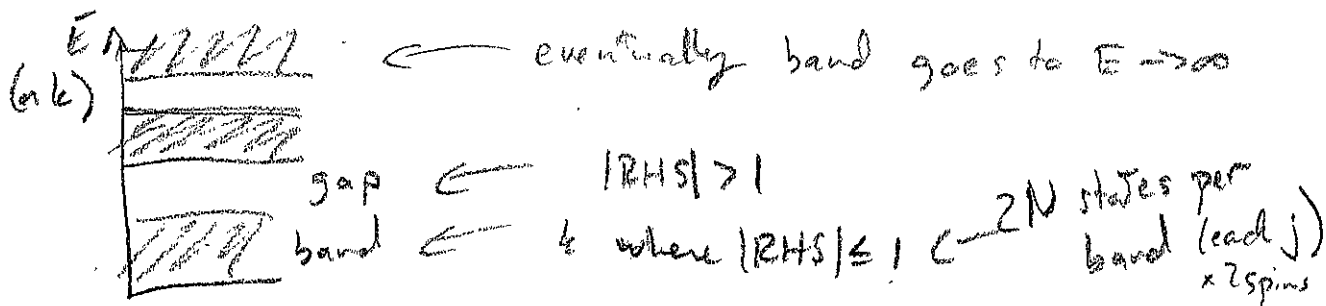 E ← eventually band goes to E → ∞
(or k)
gap ← |RHS| > 1
band ← k where |RHS| ≤ 1 ← 2N states per
band (each j)
× 2 spins